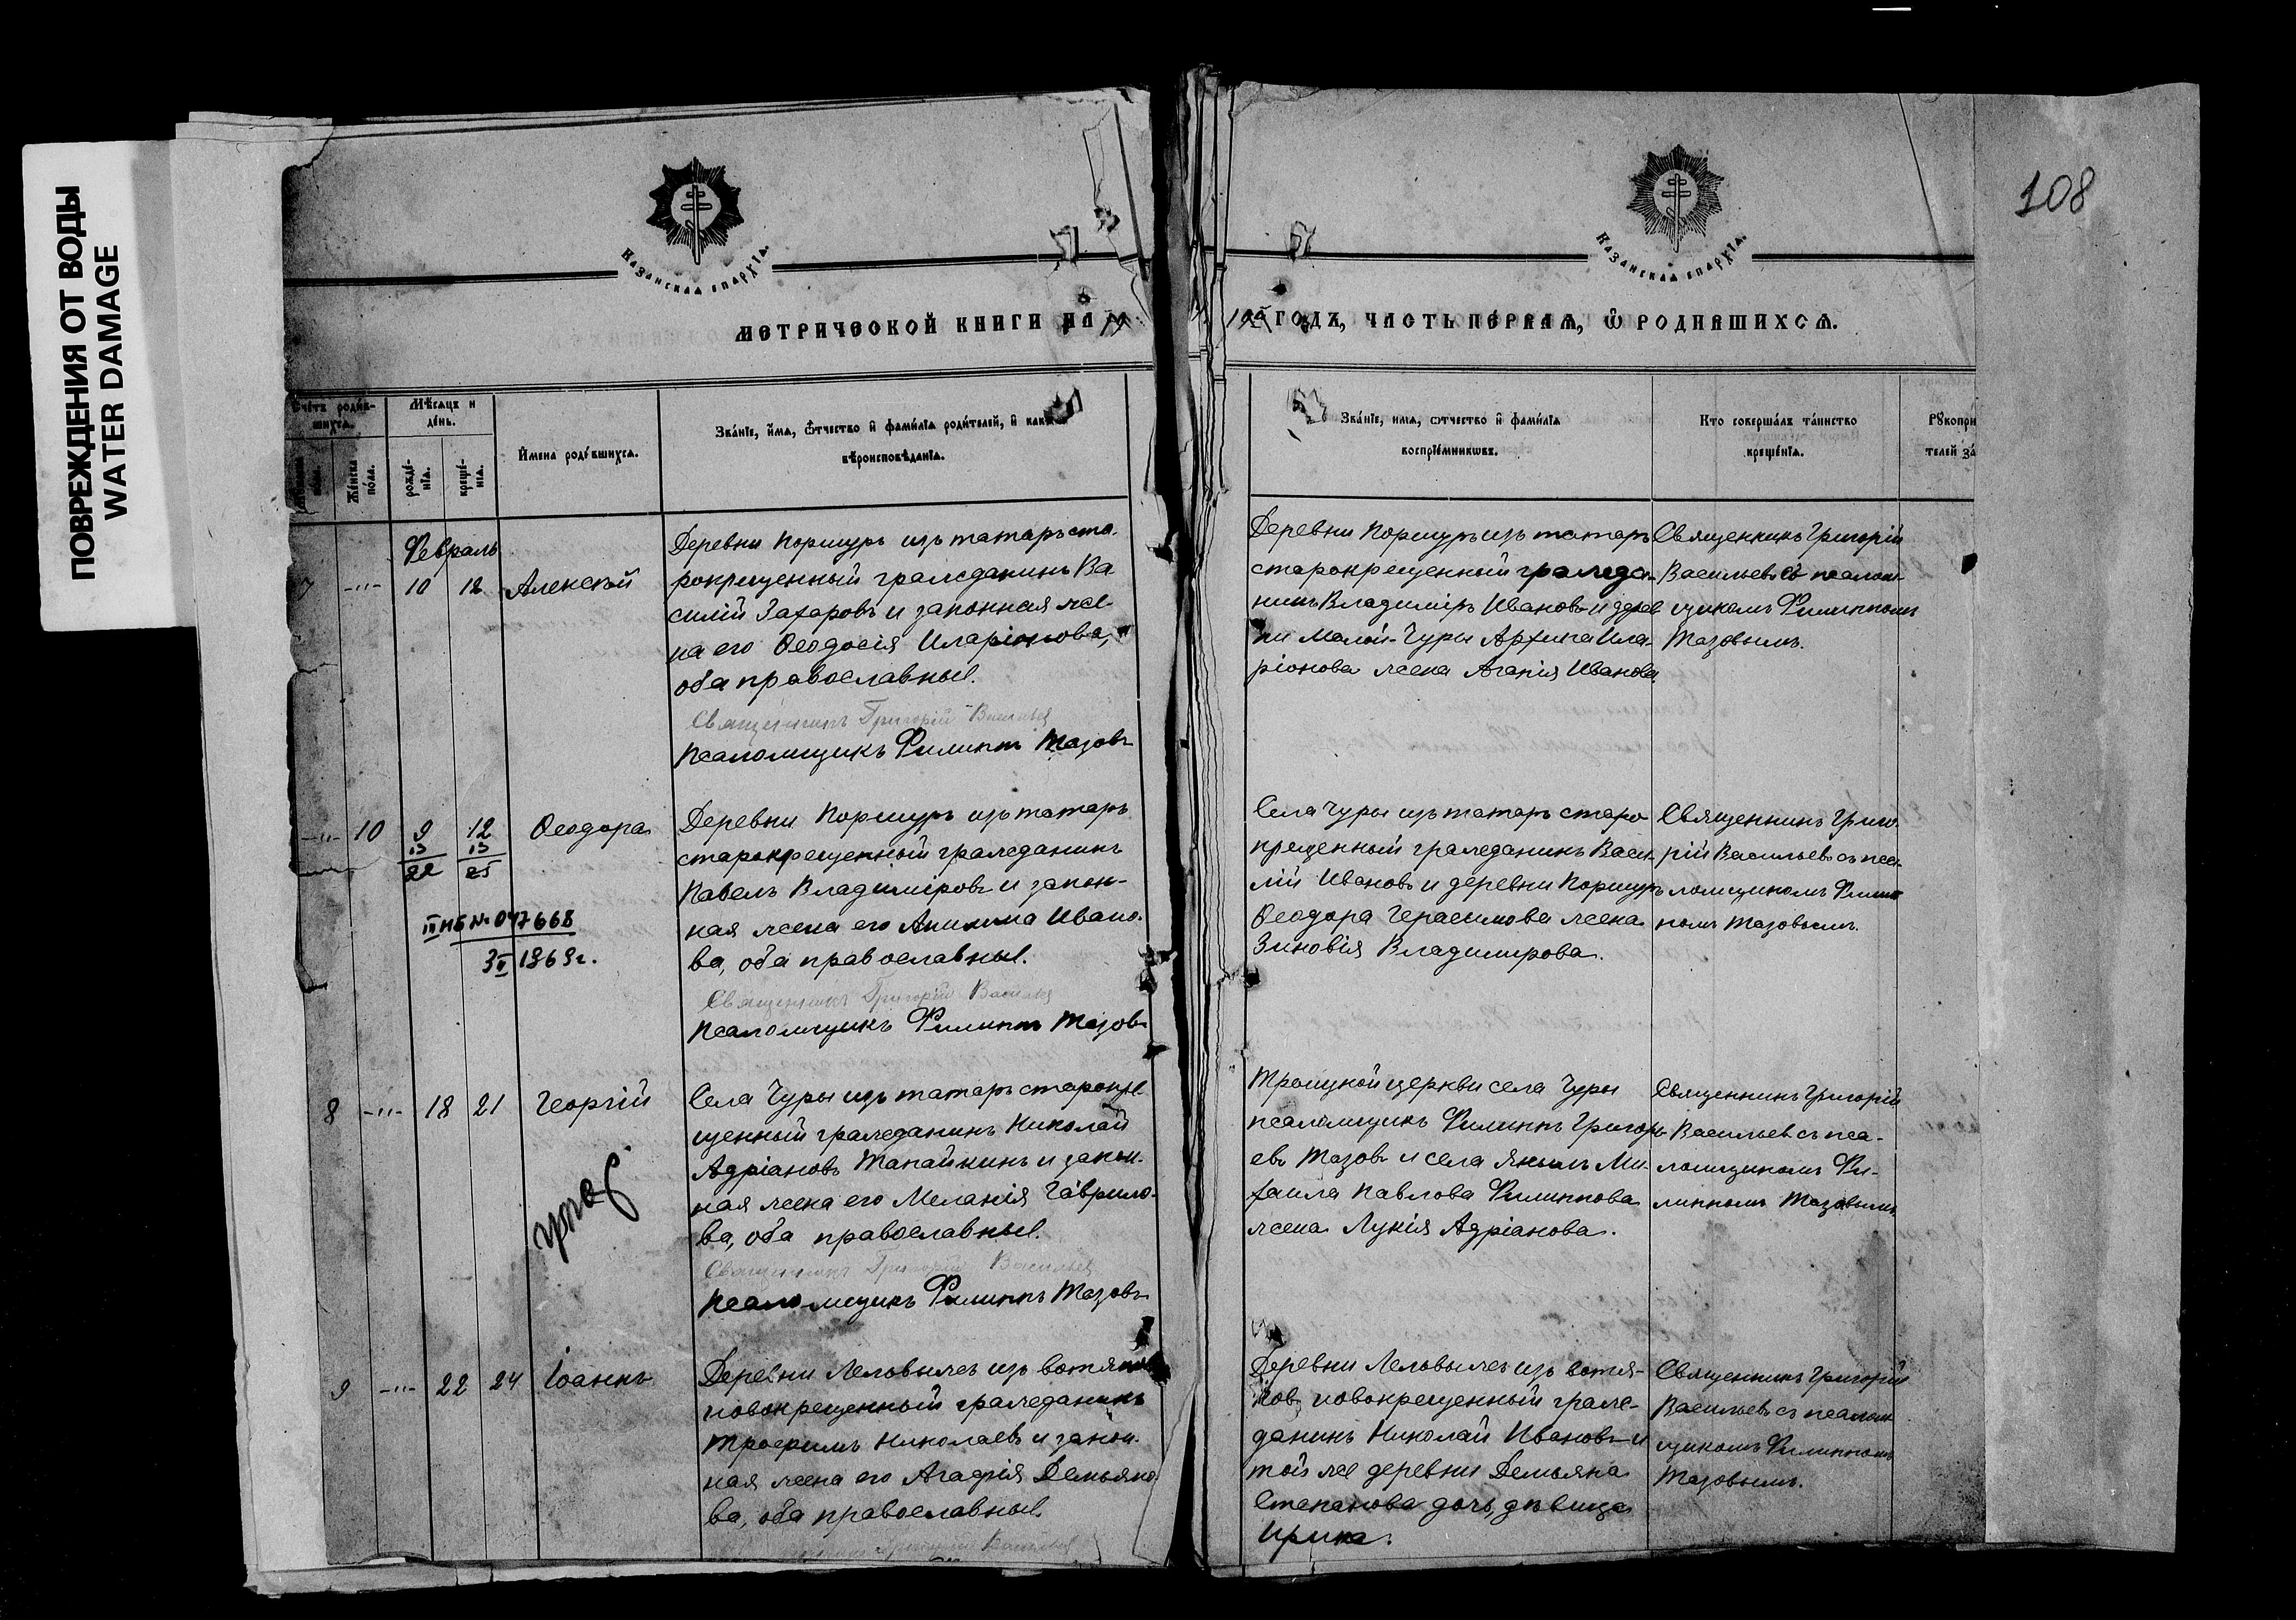 ПОВРЕЖДЕНИЯ ОТ ВОДЫ
WATER DAMAGE
108
Казанская епархїа.
Казанская епархїа.
МЕТРИЧЕСКОЙ КНИГИ НА 19
ГОДЪ, ЧАСТЬ ПЕРВАЯ, Ѿ РОДИВШИХСЯ.
Счетъ родив-
шихся.
Мѣсяцъ и
день.
Женска
пола.
рожде-
нїя.
креще-
нїя.
Имена родившихся.
Званїе, имя, ѿтчество и фамилїа родителей, и как
вѣроисповѣданїа.
Званїе, имя, ѿтчество и фамилїа
воспрїемникѡвъ.
Кто совершалъ таинство
крещенїя.
Рукопри
телей за
Февраль
7 -"- 10 12 Алексѣй
Деревни Поршуръ изъ татаръ ста-
рокрещенный гражданинъ Ва
силій Захаровъ и законная же-
на его Ѳеодосія Иларіонова,
оба православные.
Священникъ Григорій Васильев
Псаломщикъ Филиппъ Тазовъ
Деревни Поршуръ изъ татаръ
старокрещенный гражда-
нинъ Владиміръ Ивановъ и дерев
ни Малой-Чуры Архипа Ила-
ріонова жена Агапія Иванова.
Священникъ Григорій
Васильевъ съ псалом-
щикомъ Филиппомъ
Тазовымъ.
-"- 10 9 12 Ѳеодора
13 13
22 25
III НБ № 047668
3 II 1969 г.
Деревни Поршуръ изъ татаръ
старокрещенный гражданинъ
Павелъ Владиміровъ и закон-
ная жена его Акилина Ивано-
ва, оба православные.
Священникъ Григорій Васильев
Псаломщикъ Филиппъ Тазовъ
Села Чуры изъ татаръ старо
крещенный гражданинъ Васи
лій Ивановъ и деревни Поршуръ
Ѳеодора Герасимова жена
Зиновія Владимирова.
Священникъ Григо-
рій Васильевъ съ пса-
ломщикомъ Филип
помъ Тазовымъ.
8 -"- 18 21 Георгій
Села Чуры изъ татаръ старокре
щенный гражданинъ Николай
Адріановъ Тапайкинъ и закон-
ная жена его Меланія Гаврило-
ва, оба православные.
Священникъ Григорій Васильев
Псаломщикъ Филиппъ Тазовъ
Троицкой церкви села Чуры
псаломщикъ Филиппъ Григорь-
евъ Тазовъ и села Янылъ Ми-
хаила Павлова Филиппова
жена Лукія Адріанова.
Священникъ Григорій
Васильевъ съ пса-
ломщикомъ Фи-
липпомъ Тазовымъ
9 -"- 22 24 Іоаннъ
Деревни Лельвыжъ изъ вотяковъ
новокрещенный гражданинъ
Трофимъ Николаевъ и закон-
ная жена его Агафія Демьяно-
ва, оба православные.
Григорій Васильев
Деревни Лельвыжъ изъ вотя-
ковъ новокрещенный граж-
данинъ Николай Ивановъ и
той же деревни Демьяна
Степанова дочь, дѣвица
Ирина.
Священникъ Григорій
Васильевъ съ псалом
щикомъ Филиппомъ
Тазовымъ.